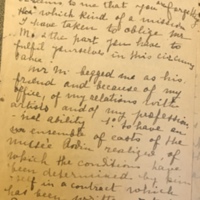 to me that you
which kind of a mission
I have taken to oblige Mr
M. & the part you have to
fulfil yourselves in this
Mr M. begged me as his
friend and because of my
office, of my relations with
artists and of my profession-
nal ability to have an
ensemble of casts of the
musée Rodin realized of
which the conditions have
been determined by him
in a contract which
has been